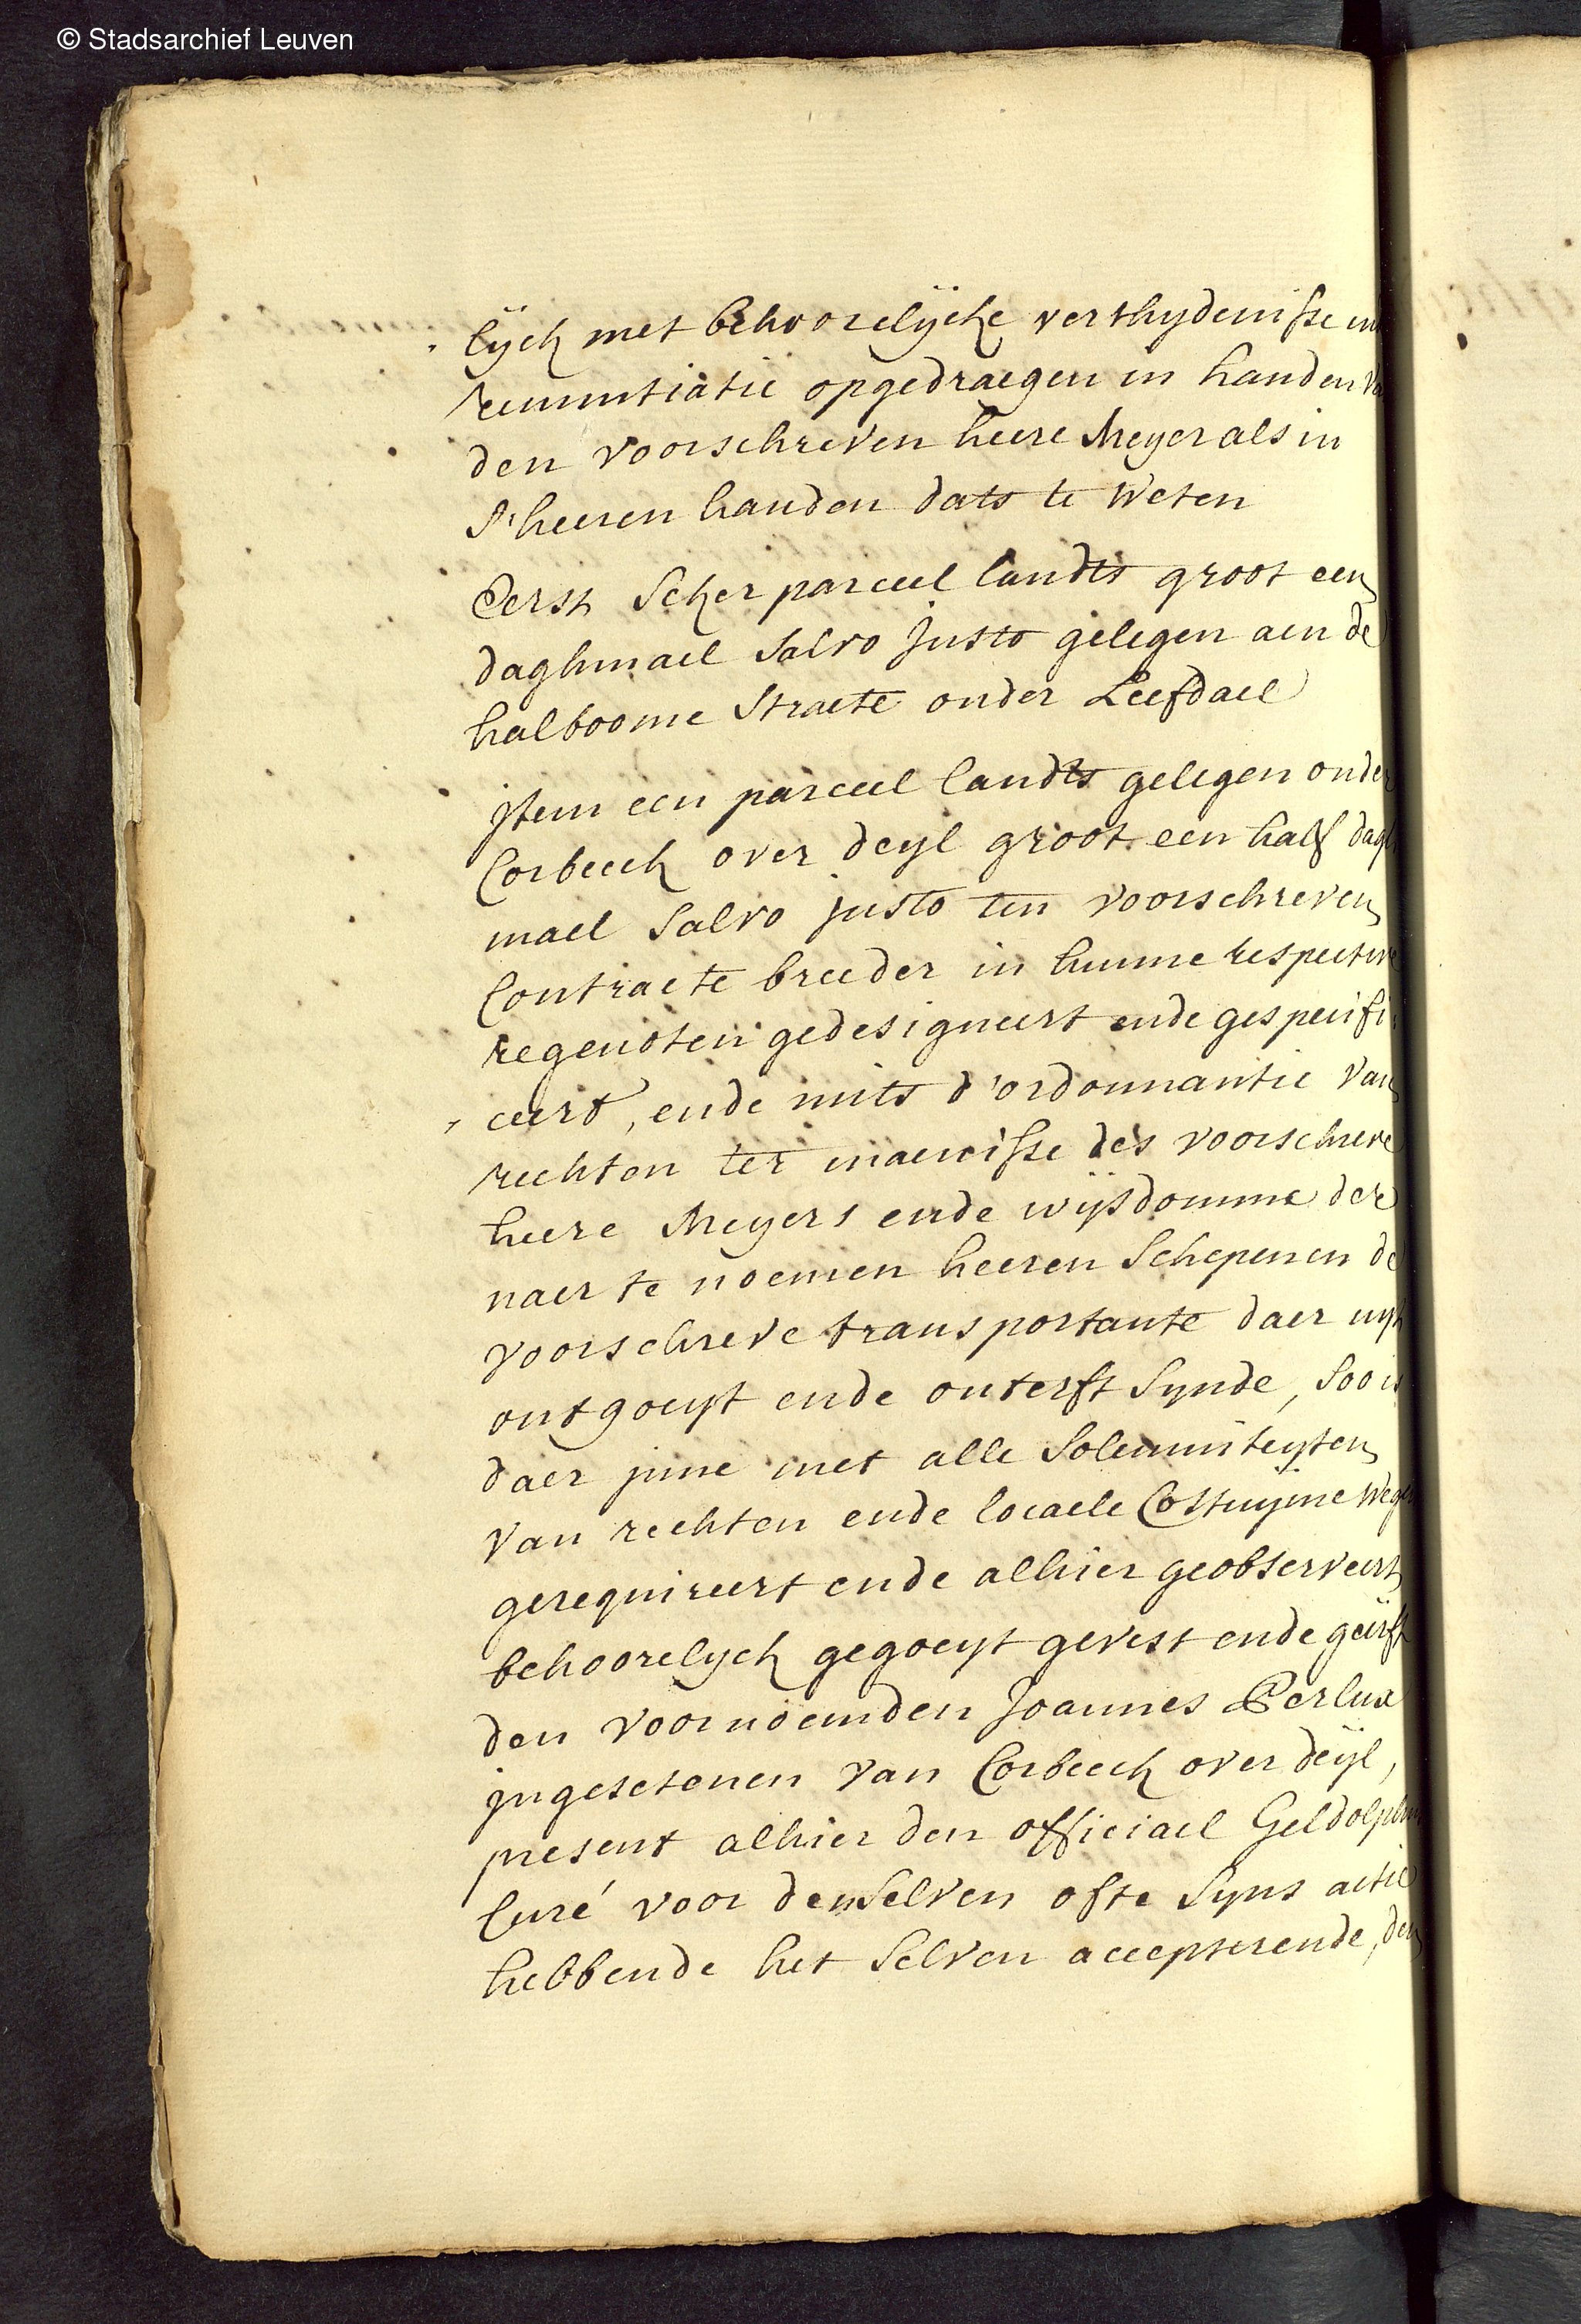 © Stadsarchief Leuven
lijck met behoorelijcke verthijdenisse
renuntiatie opgedraegen in handen
den voorschreven heere Meyer als in
s'heeren handen dats te weten
Eerst seker parceel landts groot een
daghmael salvo justo gelegen aen de
halboome straete onder Leefdael
jtem een parceel landts gelegen onder
Corbeeck over deyl groot een half dagh
mael salvo justo ten voorschreven
Contracte breeder in hunne respective
regenoten gedesigneert ende gespecifi
ceert, ende mits d'ordonnantie van
rechten ter maenisse des voorschreve
heere Meyers ende wijsdomme der
naer te noemen heeren Schepenen de
voorschreve transportante daer uyt
ontgoeyt ende onterft synde, soo is
daer inne met alle solemniteyten
van rechten ende locaele Costuyme
gerequireert ende alhier geobserveert
behoorelyck gegoeyt gevest ende geërft
den voornoemden Joannes Perlux
jngesetenen van Corbeeck over deijl,
present alhier den officiael Geldolphus
Curé voor denselven ofte syns actie
hebbende het selven accepterende, den